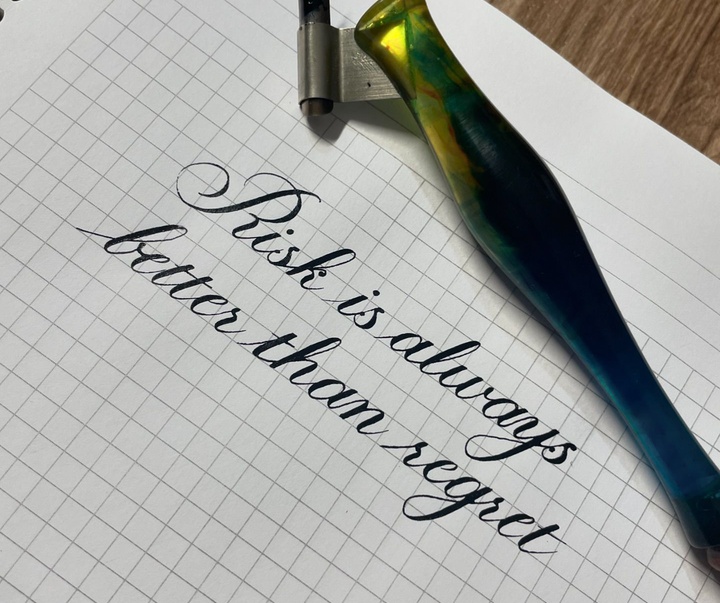 Risk is always
better than regret